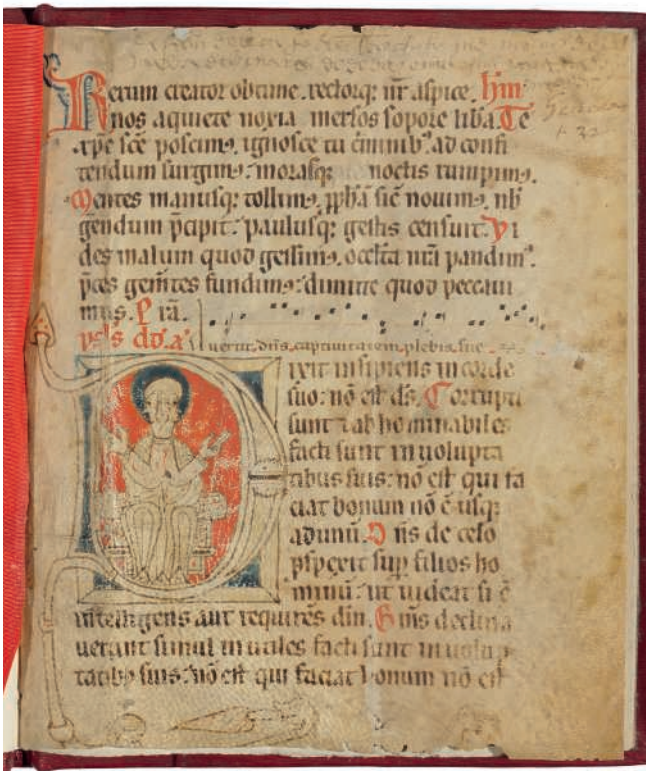 Rerum creator obtime. rectorq; nr̄ aspice. hīm
nos aquiete noxia mersos sopore liba. Te
xp̄e sc̄e poscim⁹. ignosce tu c̄minib⁹. ad confi
tendum surgim⁹. morasq; noctis rumpim⁹.
Mentes manusq; tollim⁹. pph̄a sic̄ nouim⁹. nb̄
gēndum p̄cipit. paulusq; gestis censuit. Vi
des malum quod gessim⁹. occlta nr̄a pandim⁹.
p̄ces gem̄tes fundim⁹. dimitte quod peccaui
mus. P irā.
ps̄ls dd̄. a᷑
uerterit, dn̄s, captiuitatem, plebis, sue
Dixit insipiens in corde
suo: nō est d̄s. Corrupti
sunt ⁊ abhominabiles
facti sunt in uolupta
tibus suis: nō est qui fa
ciat bonum nō ē usq;
adunū. D n̄s de celo
p̄spexit sup̄ filios ho
minū: ut uideat si ē
intelligens aut requirēs dm̄. Om̄s declina
uerunt simul inutiles facti sunt in uolup
tatib⁹ suis: nō est qui faciat bonum nō est